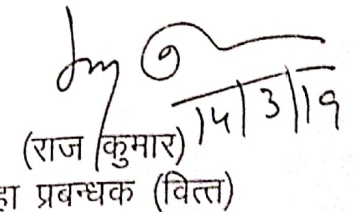 14/3/19
(राज कुमार)
हा प्रबन्धक (वित्त)